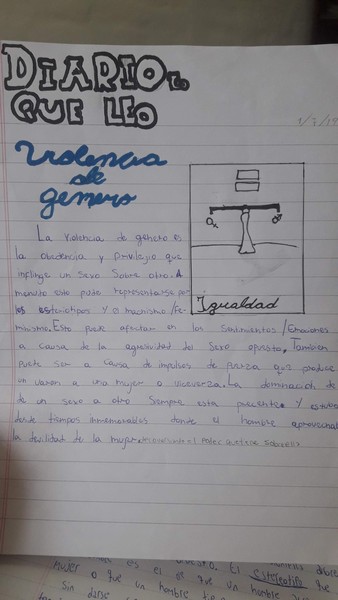 DIARIO
QUE LEO
Violencia
de
genero
Igualdad
La violencia de género es
la obediencia y privilegio que
inflinge un sexo sobre otro. A
menudo esto puede representarse por
los esteriotipos y o machismo/Fe-
minismo. Esto puede afectar en los sentimientos/Emociones
a causa de la agresividad del sexo opuesto. Tambien
puede ser a causa de impulsos de fuerza que produce
un varon a una mujer o viceverza. La dominación de
de un sexo a otro siempre esta precente. Y estuvo
desde tiempos inmemorables donde el hombre
la devilidad de la mujer el Poder que tiene sobre
El estereotipo
mujer o que un hombre
Sin darse